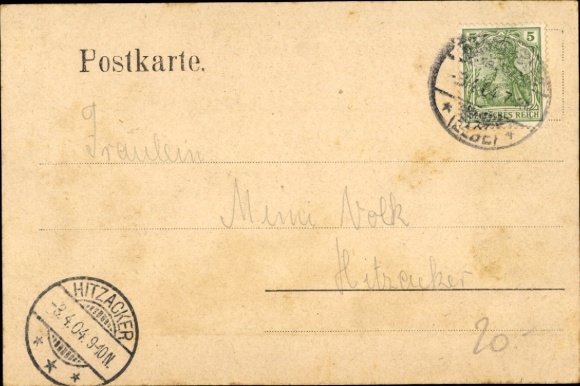 Postkarte.
5 5
DEUTSCHES REICH
(ELBE)
Fräulein
Meine Volk
Hitzacker
HITZACKER
-3.4.04.9-10N.
20.-